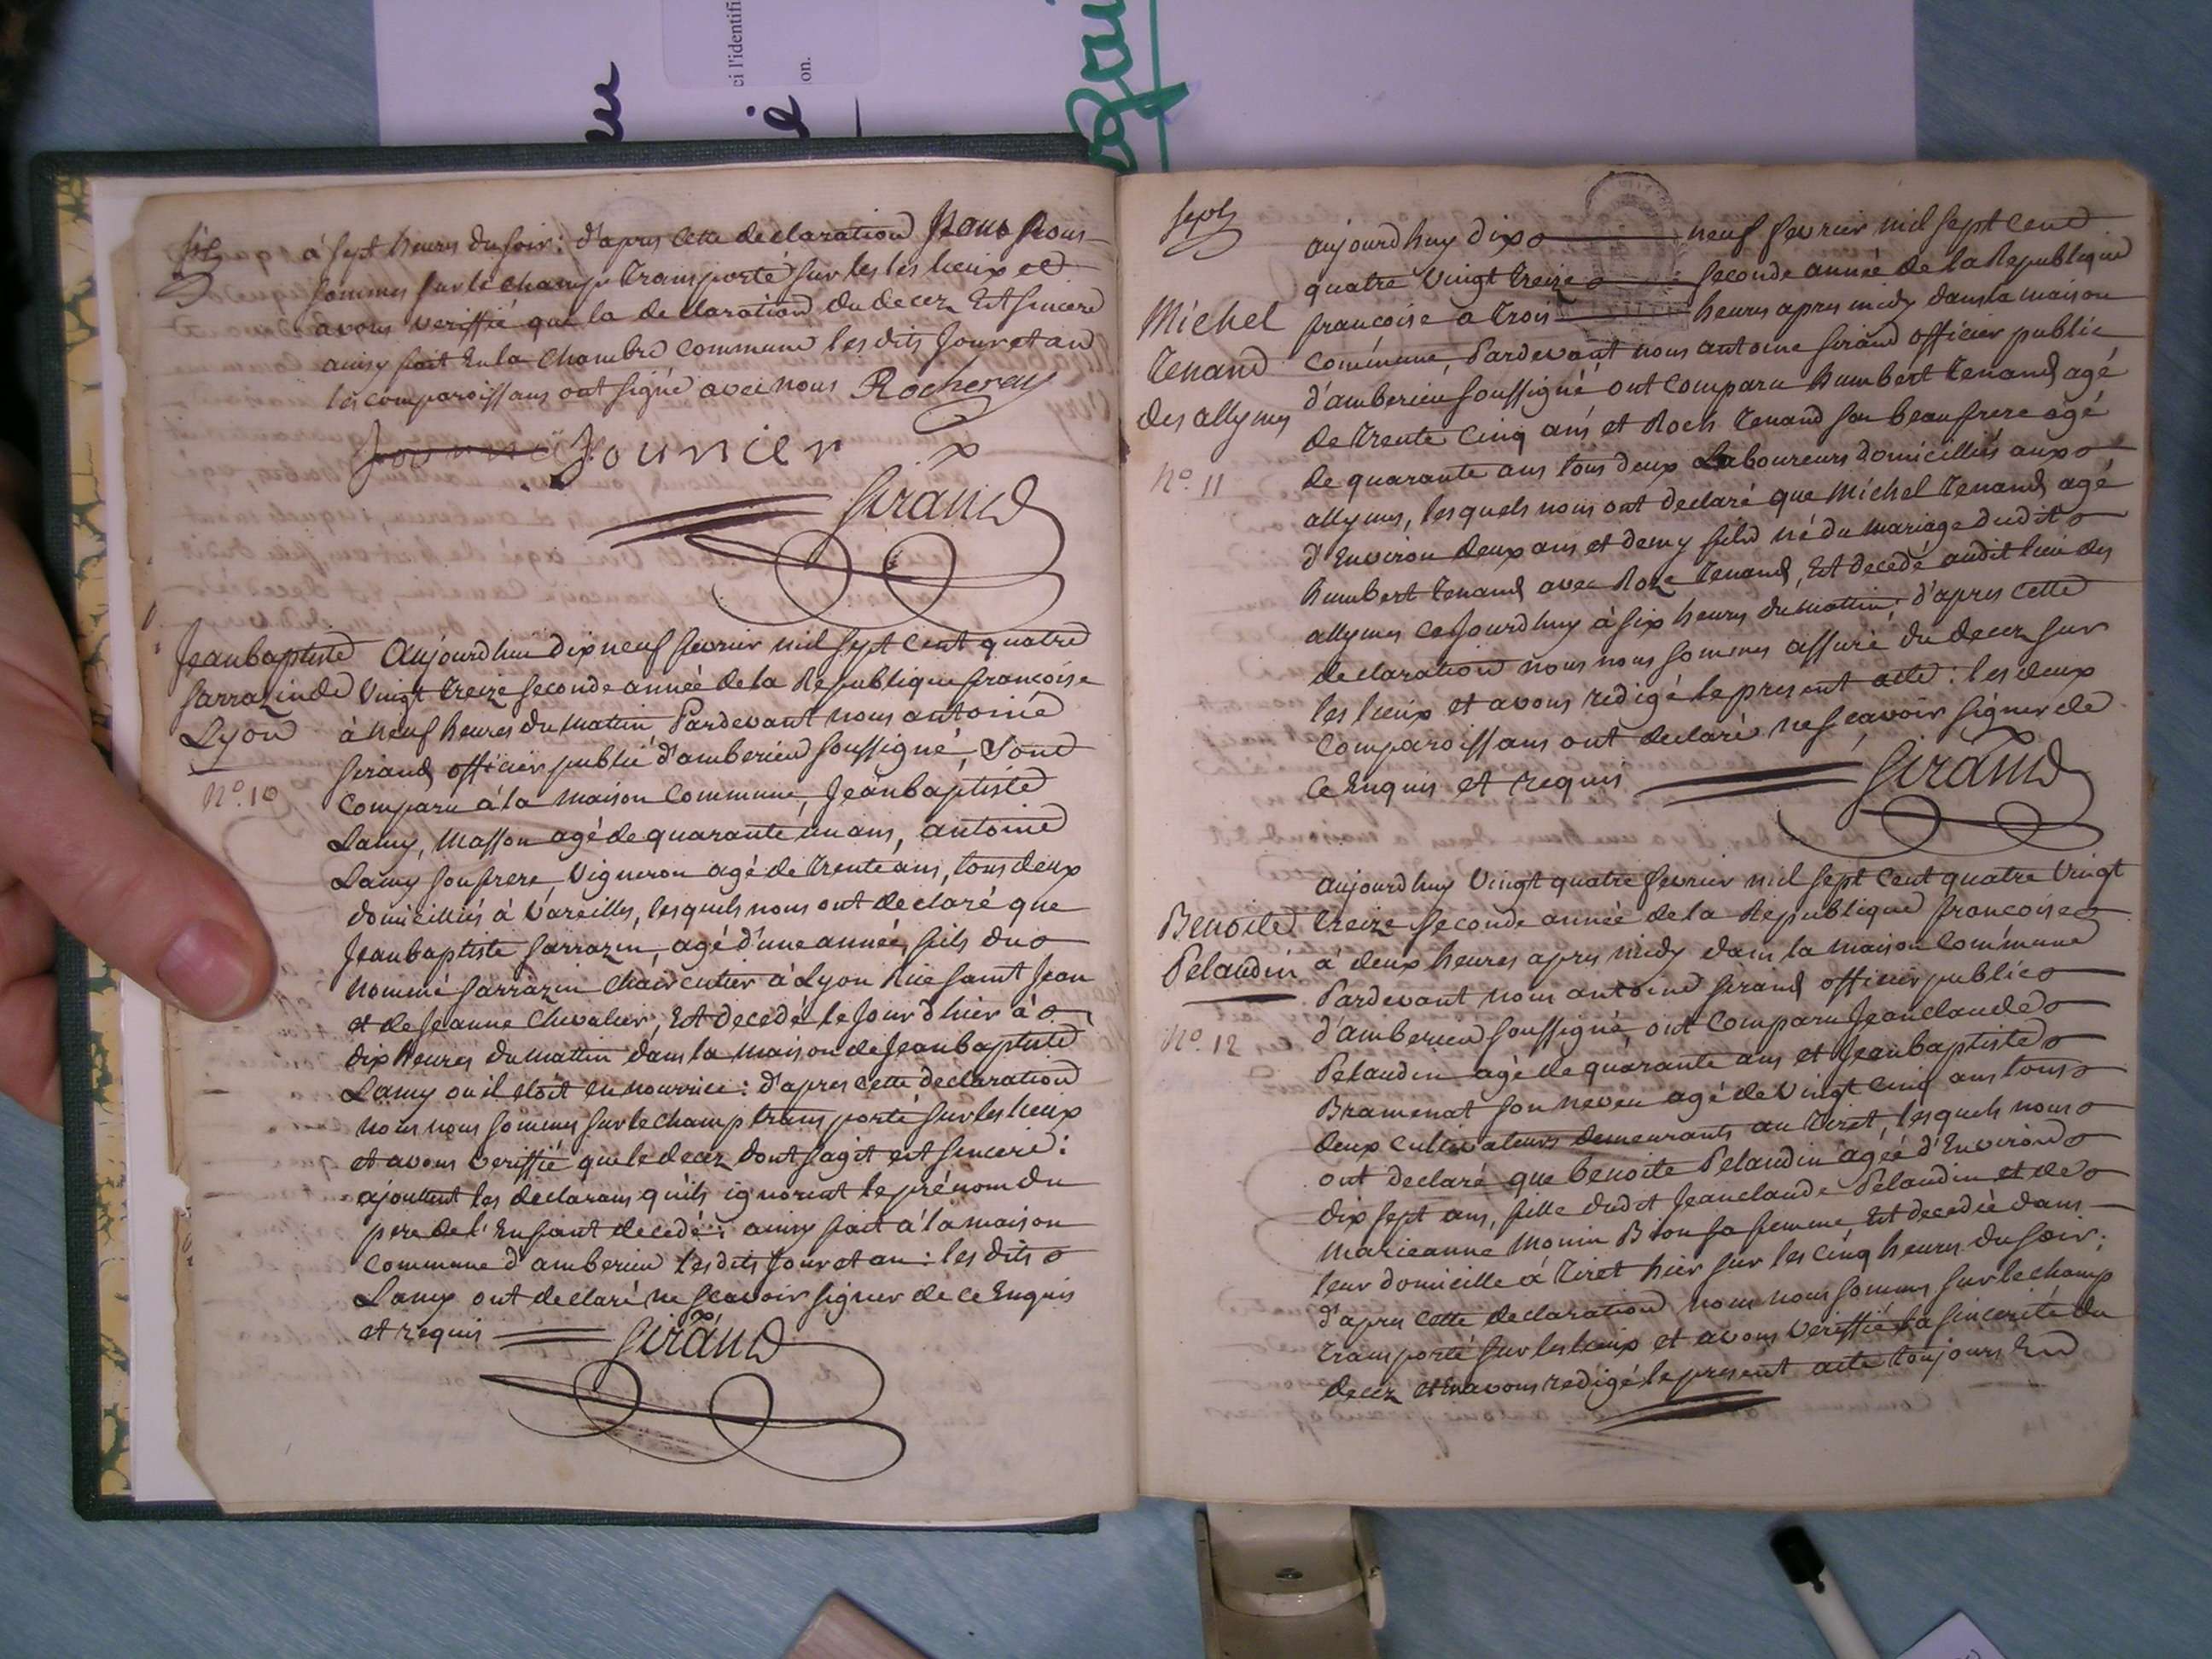 ci l'identifi
on.
six
à sept heures du soir: d'apres cette declaration nous nous
sommes sur le champ transporté sur les les lieux et
avons veriffié que la declaration du decez Est sincere
ainsy fait En la chambre commune les dits Jour et an
les comparoissans ont signé avec nous Rocheray
Jounier
Girand
Jeanbaptiste
Sarrazin de
Lyon
N.º 10
Aujourdhui dix neuf fevrier mil sept cent quatre
vingt treize seconde année de la Republique francoise
à neuf heures du matin, Pardevant nous antoine
Girand officier public d'amberieu soussigné, Sont
comparu à la maison commune, Jeanbaptiste
Lamy, masson agé de quarante un ans, antoine
Lamy son frere, Vigneron agé de trente ans, tous deux
domicilliés à Vareilles, lesquels nous ont declaré que
Jeanbaptiste Sarrazin, agé d'une année, fils du
nommé Sarrazin Chaircutier à Lyon Rue saint Jean
et de Jeanne Chevalier, Est decedé le Jour d'hier à
dix heures du matin dans la maison de Jeanbaptiste
Lamy ou il étoit en nourrice: d'apres cette declaration
nous nous sommes sur le champ transporté sur les lieux
et avons veriffié que le decez dont s'agit est sincere:
ajoutent les declarans qu'ils ignorent le prénom du
pere de l'Enfant decedé: ainsy fait à la maison
commune d'amberieu les dits Jour et an: les dits
Lamy ont declaré ne scavoir signer de ce Enquis
et requis Girand
sept
Michel
Tenand
des allymes
N.º 11
aujourdhuy dix neuf fevrier mil sept cent
quatre vingt treize seconde année de la Republique
francoise a trois heures apres midy dans la maison
commune, Pardevant nous antoine Girand officier public
d'amberieu soussigné, ont comparu humbert tenand agé
de trente cinq ans et Roch Tenand son beau frere agé
de quarante ans tous deux Laboureurs domicilliés aux
allymes, lesquels nous ont declaré que Michel Tenand agé
d'Environ deux ans et demy fils né du mariage dudit
humbert tenand avec Roze Tenand, Est decedé audit lieu des
allymes cejourdhuy à six heures du matin; d'apres cette
declaration nous nous sommes assuré du decez sur
les lieux et avons redigé le present acte: les deux
comparoissans ont declaré ne scavoir signer de
ce Enquis et requis Girand
Benoite
Pelaudin
N.º 12
aujourdhuy Vingt quatre fevrier mil sept cent quatre vingt
treize seconde année de la Republique francoise
à deux heures apres midy dans la maison commune
Pardevant nous antoine Girand officier public
d'amberieu soussigné, ont comparu Jeanclaude
Pelaudin agé de quarante ans et Jeanbaptiste
Bramenat son neveu agé de vingt cinq ans tous
deux cultivateurs demeurants au Tiret, lesquels nous
ont declaré que Benoite Pelaudin agée d'Environ
dix sept ans, fille dudit Jeanclaude Pelaudin et de
Marieanne Monin Bron sa femme Est decedée dans
leur domicille à Tiret hier sur les cinq heures du soir;
d'apres cette declaration nous nous sommes sur le champ
transporté sur les lieux et avons veriffié la sincerité du
decez et En avons redigé le present acte toujours En